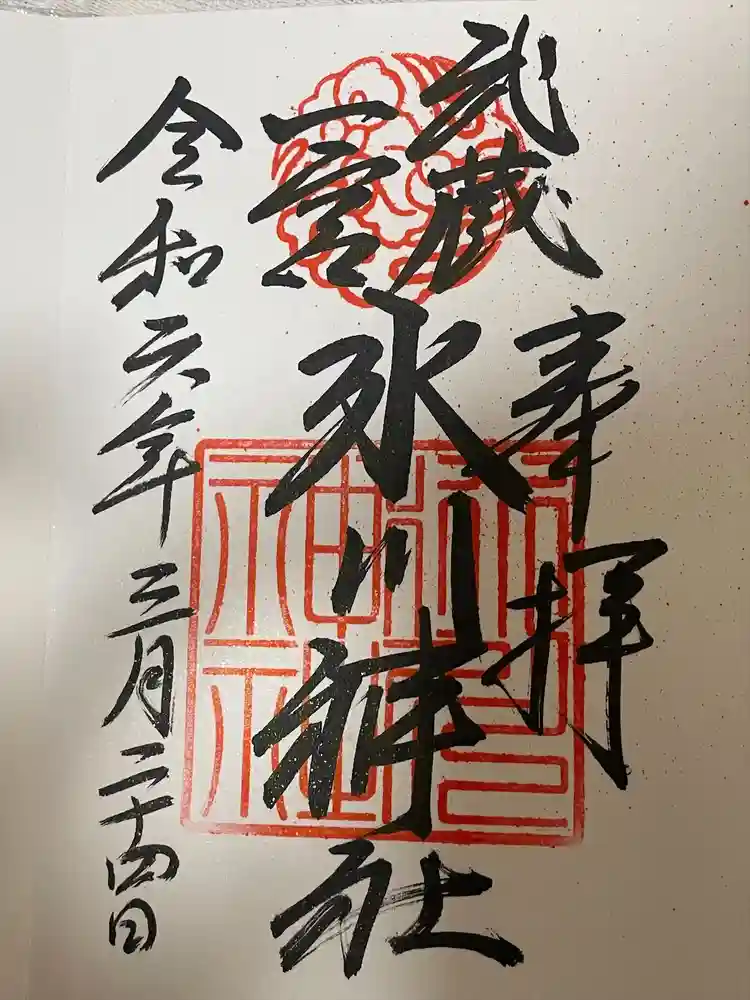 奉拝
武蔵
一宮
氷川神社
令和六年三月二十四日